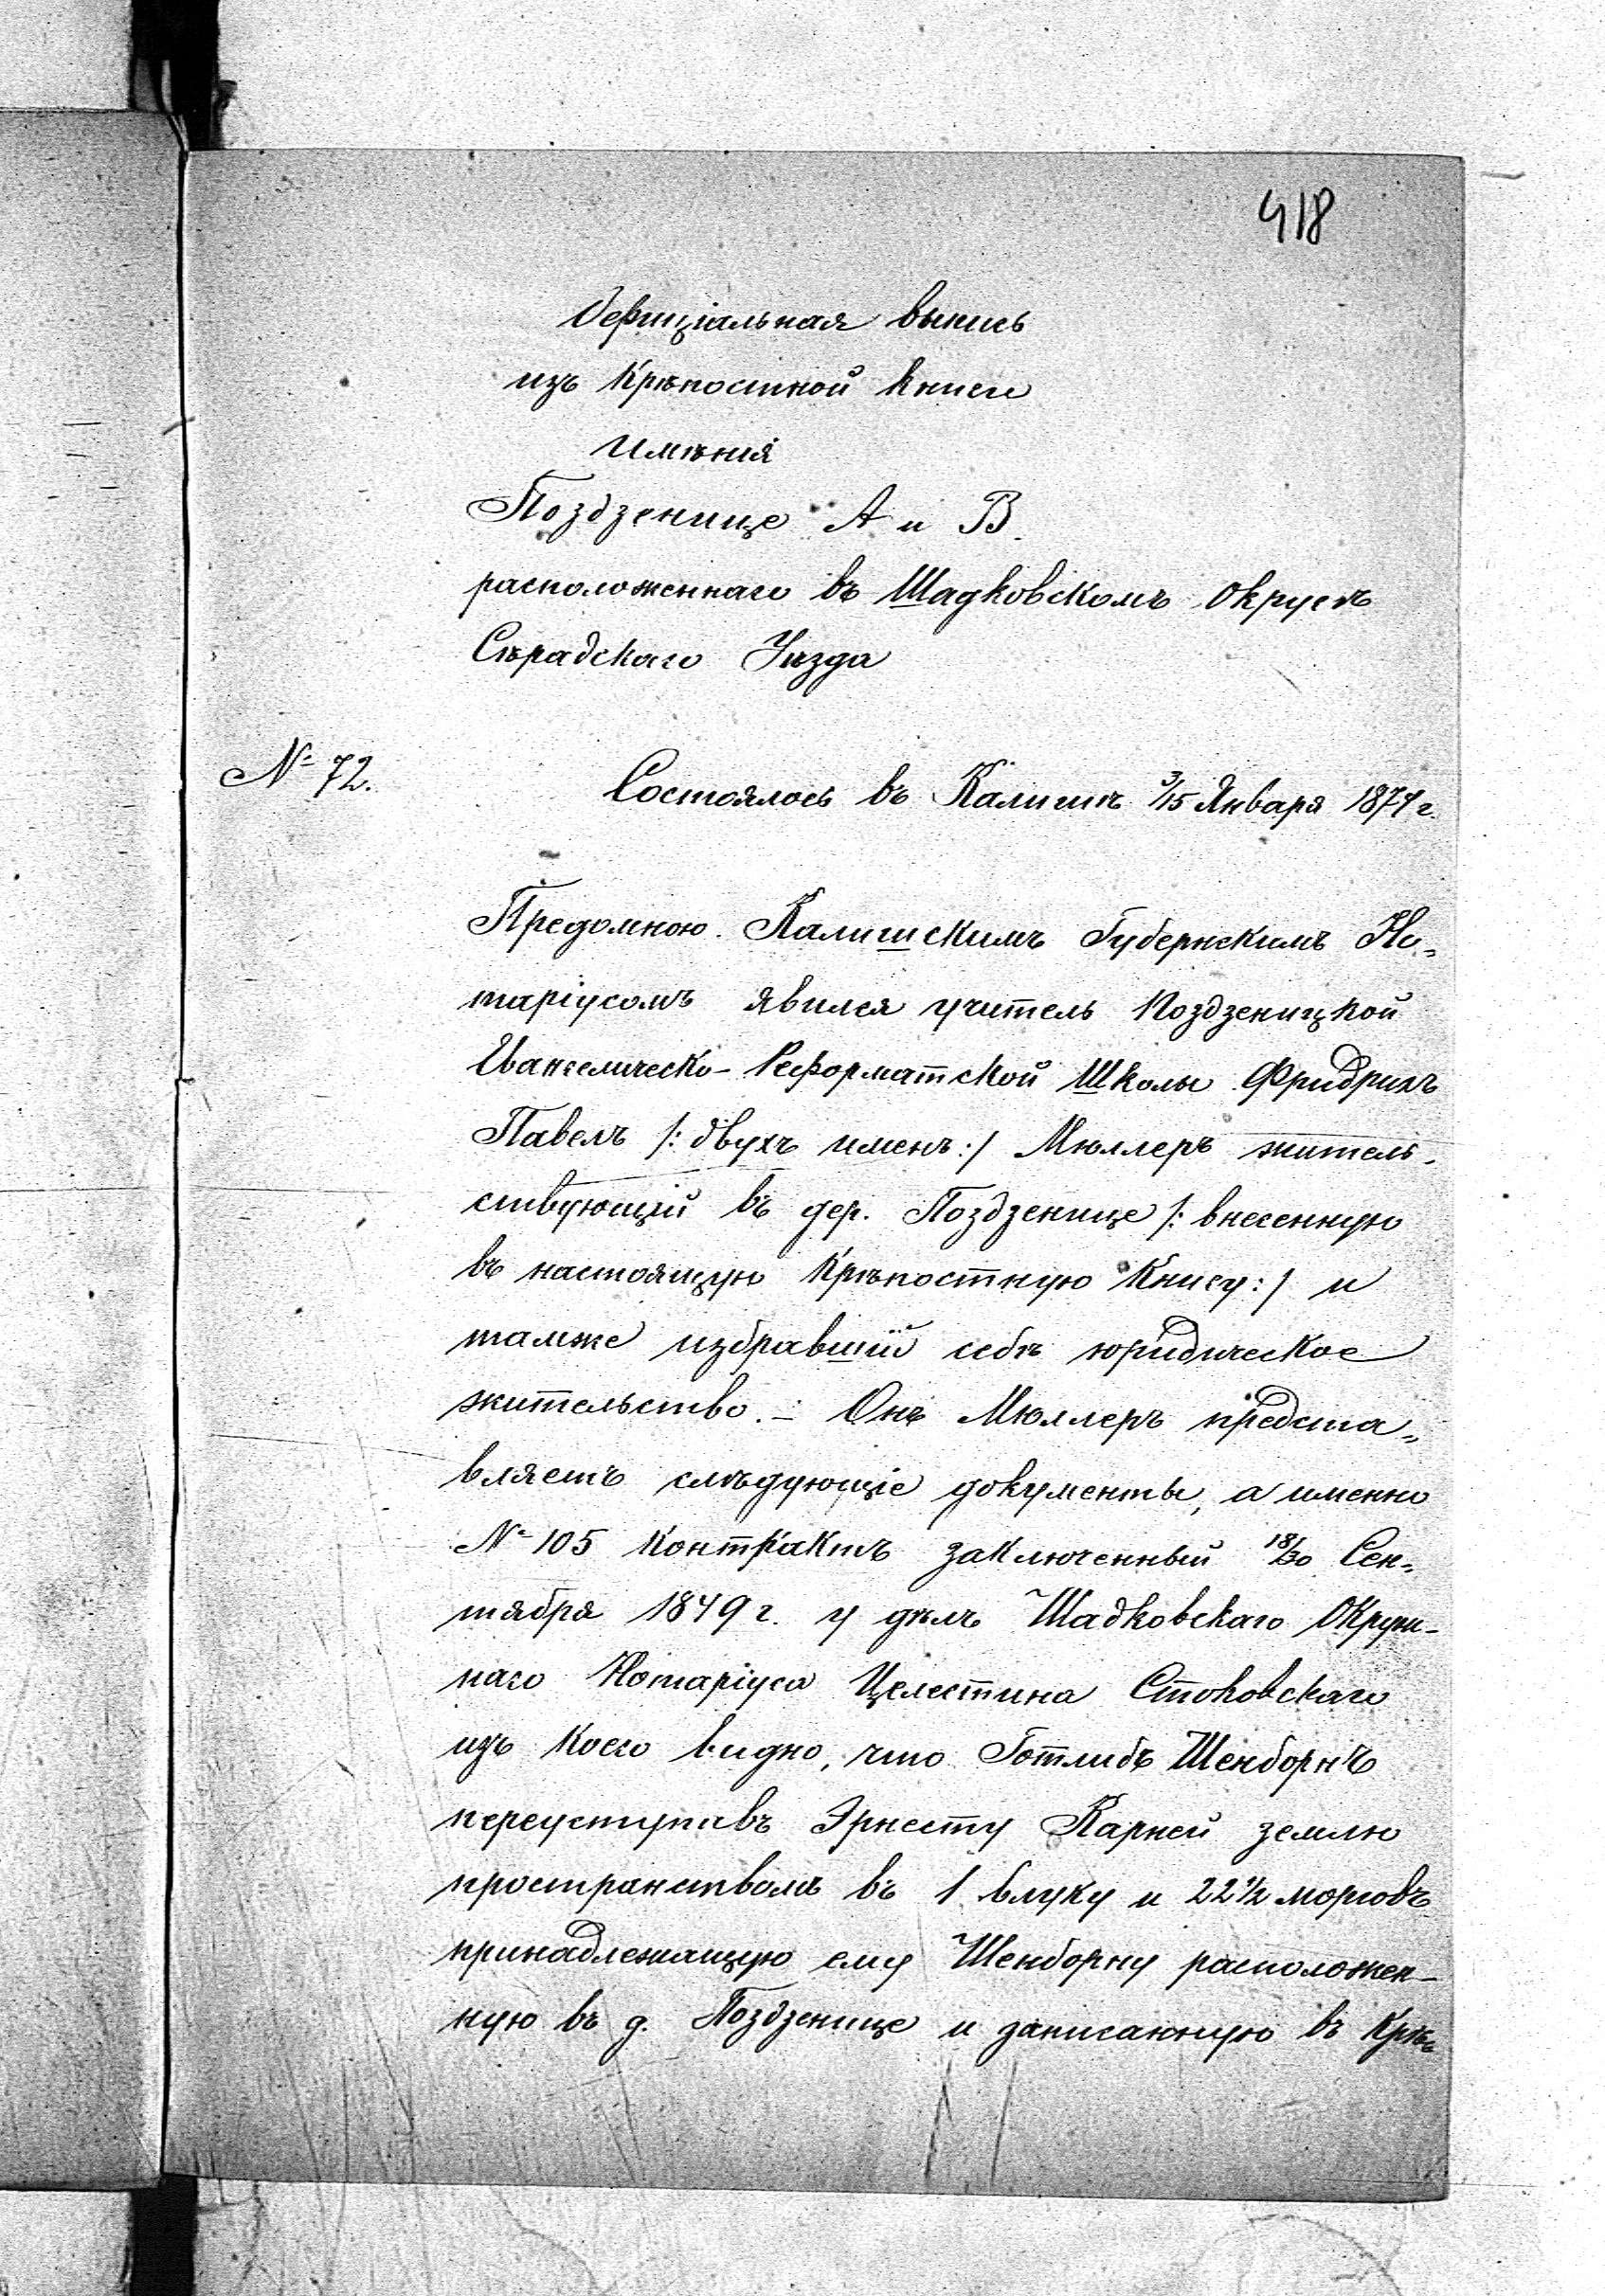 418
Офиціальная выпись
изъ Крѣпостной Книги
Имѣнія
Поздзенице А и В.
расположеннаго въ Шадковскомъ Округѣ
Сѣрадскаго Уѣзда
№ 72.
Состоялось въ Калишѣ 3/15 Января 1874 г.
Предомною Калишскимъ Губернскимъ Но„
таріусомъ явился учитель Поздзеницкой
Евангелическо-Реформатской Школы Фридрихъ
Павелъ /: двухъ именъ :/ Мюллеръ житель-
ствующій въ дер. Поздзенице /: внесенную
въ настоящую Крѣпостную Книгу :/ и
тамже избравшій себѣ юридическое
жительство. – Онъ Мюллеръ предста„
вляетъ слѣдующіе документы, а именно
№ 105 Контрактъ заключенный 18/30 Сен-
тября 1849 г. у дѣлъ Шадковскаго Окруж-
наго Нотаріуса Целестина Стоковскаго
изъ коего видно, что Готлибъ Шенборнъ
переуступивъ Эрнесту Карней землю
пространствомъ въ 1 влуку и 22 1/2 морговъ
принадлежащую ему Шенборну расположен-
ную въ д. Поздзенице и записанную въ Крѣ-